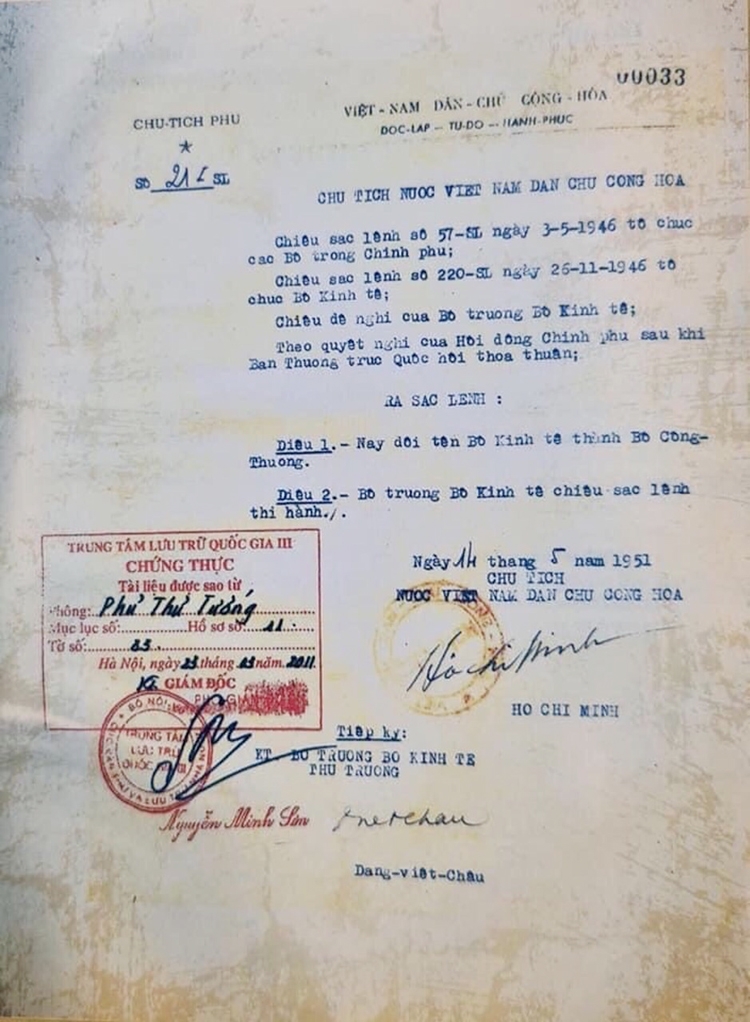 00033
CHU-TICH PHU
VIỆT-NAM DÂN-CHỦ CỘNG-HÒA
DOC-LAP -- TU-DO -- HANH-PHUC
Số 21I SL
CHU TICH NUOC VIET NAM DAN CHU CONG HOA
Chiêu sac lênh sô 57-SL ngày 3-5-1946 tô chuc
cac Bô trong Chinh phu;
Chiêu sac lênh sô 220-SL ngày 26-11-1946 tô
chuc Bô Kinh tê;
Chiêu dê nghi cua Bô truong Bô Kinh tê;
Theo quyêt nghi cua Hôi dông Chinh phu sau khi
Ban Thuong truc Quôc hôi thoa thuân;
RA SAC LENH :
Diêu 1.- Nay dôi tên Bô Kinh tê thành Bô Công-
Thuong.
Diêu 2.- Bô truong Bô Kinh tê chiêu sac lênh
thi hành./.
Ngày 14 thang 5 nam 1951
CHU TICH
NUOC VIET NAM DAN CHU CONG HOA
Hồ Chí Minh
HO CHI MINH
TRUNG TÂM LƯU TRỮ QUỐC GIA III
CHỨNG THỰC
Tài liệu được sao từ
Phông: Phủ Thủ Tướng
Mục lục số: Hồ sơ số: 11
Tờ số: 83
Hà Nội, ngày 23 tháng 03 năm 2011
KT. GIÁM ĐỐC
BỘ NỘI VỤ
TRUNG TÂM
LƯU TRỮ
QUỐC GIA III
Nguyễn Minh Sơn
Tiêp ky:
KT. BO TRUONG BO KINH TE
THU TRUONG
Dang-viêt-Châu